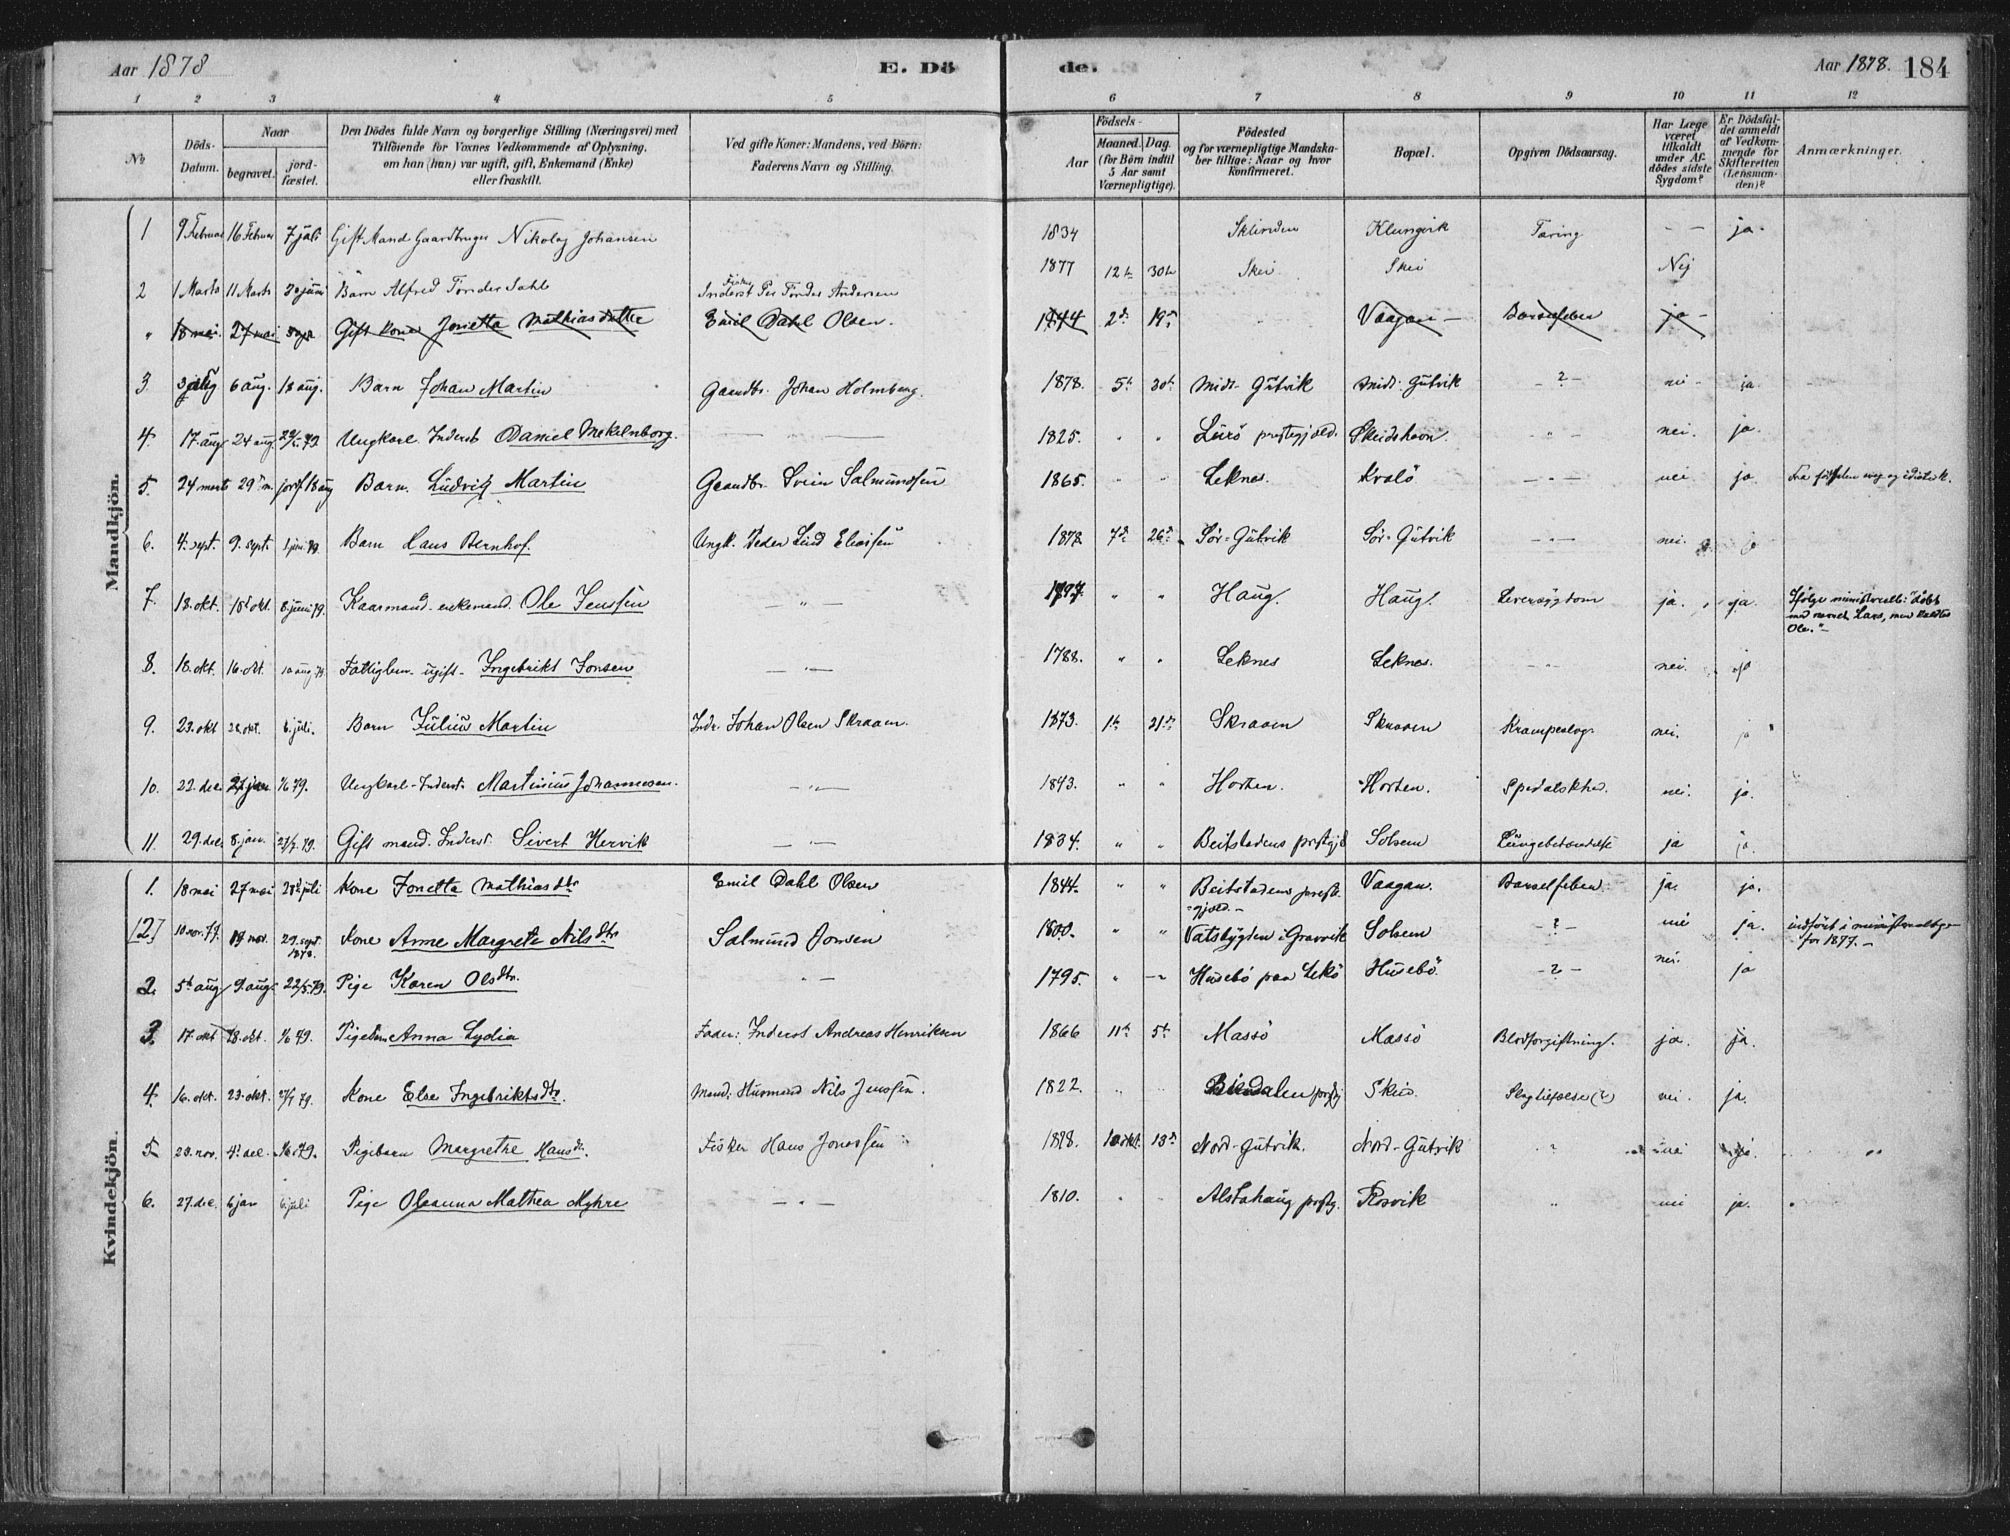 Aar 1878
E. Dö
de.
Aar 1878.
184
1 2 3 4 5 6 7 8 9 10 11 12
No
Döds-
Datum.
Naar
begravet.
jord-
fæstet.
Den Dödes fulde Navn og borgerlige Stilling (Næringsvei) med
Tilföiende for Voxnes Vedkommende af Oplysning,
om han (hun) var ugift, gift, Enkemand (Enke)
eller fraskilt.
Ved gifte Koner: Mandens, ved Börn:
Faderens Navn og Stilling.
Födsels-
Aar
Maaned. Dag.
(for Börn indtil
5 Aar samt
Værnepligtige).
Födested
og for værnepligtige Mandska-
ber tillige: Naar og hvor
Konfirmeret.
Bopæl.
Opgiven Dödsaarsag.
Har Læge
været
tilkaldt
under Af-
dödes sidste
Sygdom?
Er Dödsfal-
det anmeldt
af Vedkom-
mende for
Skifteretten
(Lensman-
den)?
Anmærkninger.
Mandkjön.
1 9 Februar 16 Februar 7 juli Gift Mand Gaardbruger Nikolay Johansen 1834 Sklinden Klungvik Tæring - - ja.
2 1 Marts 11 Marts 30 juni Barn Alfred Tønder Dahl Fisker
Inderst Per Tønder Andersen 1877 12te 30te Skei Skei Nej
" 18 mai. 27 mai Gift kone Jonetta Mathiasdatter Emil Dahl Olsen. 1844 2d 19d Vaagan - Barselfeber ja -
3 6 aug. 18 aug. Barn Johan Martin Gaardbr. Johan Holmberg. 1878. 5te 30te Midt-Gutvik Midt-Gutvik - ? - nei - ja
4. 17. aug 24 aug. Ungkarl Inderst Daniel Mekelnborg. 1825. " " Lurö prestegjeld. Skeidshavn. - " - nei. ja.
5. 24 marts 29 m. jordf 18 aug Barn. Ludvig Martin Gaardbr. Svein Salmundsen 1865. - - Leknes. Kvalö - " - nei ja Fra födselen svag og idiotisk.
6. 4. sept. 9. sept. 1 jun. 79. Barn Hans Bernhof. Ungk. Peder Lind Eliassen 1878 7de 26de Sör-Gutvik Sör-Gutvik - " - nei. ja
7. 18. okt. 18d okt. 8. juni 79. Kaarmand. enkemand. Ole Jenssen - " - " " Haug. Haug. Leversygdom ja. ja. Ifölge ministerialb: "döbt
med navnet Lars, men kaldtes
Ole." -
8. 18. okt. 16. okt. 10 aug 79 Fattiglem. ugift - Ingebrikt Jonsen - " - 1788. " " Leknes Leknes. - " - nei. ja
9. 23. okt 28. okt. 6. juli. Barn Julius Martin Indr. Johan Olsen Skraaen. 1873. 1te 21de Skraaen Skraaen Krampeslag. nei. ja
10. 22. dec 2 jan 1/6 79. Ungkarl-Inderst. Martinius Johannesen. - " - 1843. " " Horten. Horten. Spedalskhed. nei. ja.
11. 29. dec 8. jan. 79. Gift mand. Inderst. Sivert Hervik - " - 1834. " " Beitstadens prstgjd Solsem Lungebetændelse ja ja.
Kvindekjön.
1. 18 mai 27 mai 28d juli Kone Jonetta Mathiasdtr Emil Dahl Olsen 1844. " " Beitstadens preste-
gjeld. - Vaagan. Barselfeber. ja. ja.
[2] 10 nov. 77. 19 nov. 29. sept.
1878. Kone Anne Margrete Nilsdtr Salmund Jonsen 1800. " " Vatsbygden i Gravvik Solsem - ? - nei ja. indfört i ministerialbogen
for 1877. -
2. 5te aug 9. aug. 22/5 79. Pige Karen Olsdtr. - " - 1795. " - " Husebö paa Lekö Husebö - ? - nei. ja
3. 17. okt 28. okt. 1/6 79. Pigebarn Anna Lydia Fader: Inderst Andreas Henriksen 1866 11te 5te Massö Massö Blodforgiftning. ja. ja.
4. 16. okt. 23. okt. 79. Kone Else Ingebriktsdtr. Mand: Husmand Nils Jenssen. 1822. " " Bindalen prstg. Skei. Slagtilfælde (?) nei. ja.
5 28. nov. 4. dec. 1/6 79. Pigebarn Margrethe Hansdtr. Fisker Hans Jonassen 1878. 10 okt. 18de Nord-Gutvik. Nord-Gutvik " nei ja. "
6. 27. dec. 6 jan 6. juli Pige Oleanna Mathea Myhre - " - 1810. " " Alstahaug prstg. Rosvik " nei ja.